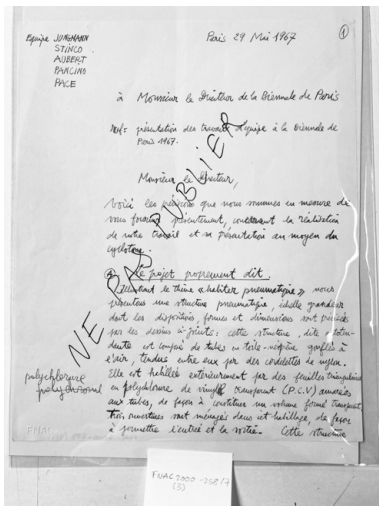 Equipe JUNGMANN
STINCO
AUBERT
PANCINO
PACE
Paris 29 Mai 1967
1
à Monsieur le Directeur de la Biennale de Paris
Ref: présentation des travaux d'équipe à la biennale de
Paris 1967.
Monsieur le Directeur,
Voici les précisions que nous sommes en mesure de
vous fournir présentement, concernant la réalisation
de notre travail et sa présentation au moyen du
le projet proprement dit.
le thème "habiter pneumatique", nous
présentons une structure pneumatique, idelle grandeur
dont les dispositions, formes et dimensions sont précisées
par les dessins ci-joints: cette structure, dite
est conçue de tubes en toile-néoprène gonflés à
l'air, tendues entre eux par des cordelettes de nylon.
Elle est habillée extérieurement par des feuilles triangulaires
polychlorure
en polychlorure de vinyle transparent (P.C.V) amarrées
aux tubes, de façon à constituer un volume fermé transparent,
trois ouvertures sont ménagées dans cet habillage de façon
à permettre l'entrée et la sortie. Cette structure
NE PAS PUBLIER
FNAC
FNAC 2000-258/7
(3)